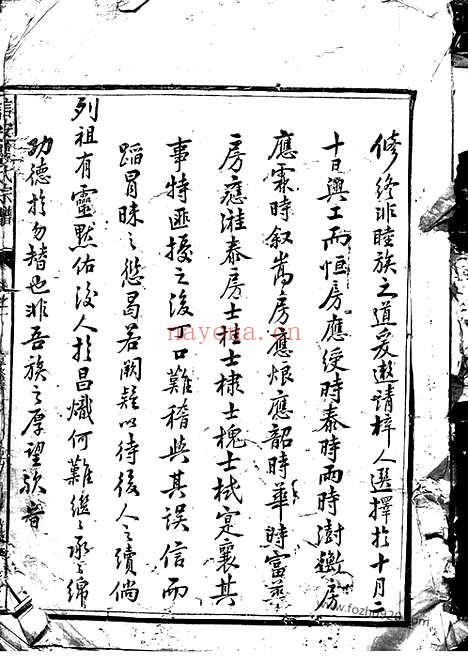 修終非睦族之道爰邀請梓人選擇於十月二
十日興工而恒房應綬時泰時雨時澍衡房
應霖時敘嵩房應烺應韶時華時富蒸
房應漼泰房士桂士棣士槐士栻寔襄其
事特匪擾之後口口難稽與其誤信而
蹈冒昧之愆曷若闕疑以待後人之續倘
列祖有靈默佑後人於昌熾何難繼繼承承綿
功德於勿替也非吾族之厚望歟
nayona.cn
www.fozhu920.com